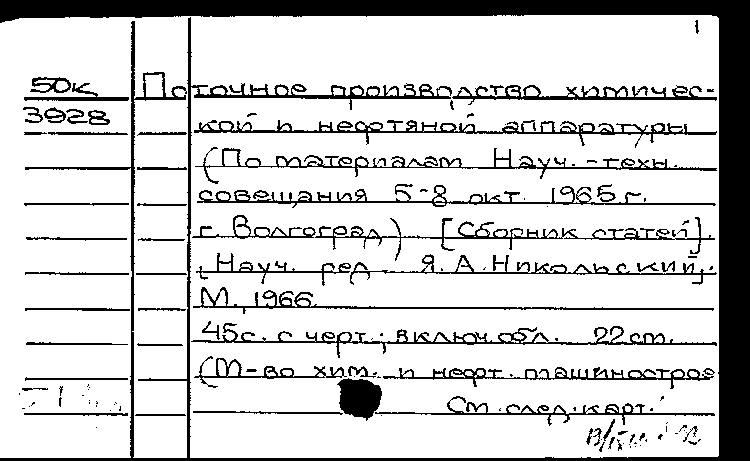 1
50к Поточное производство химичес-
3928 кой и нефтяной аппаратуры
(По материалам Науч.-техн.
совещания 5-8 окт. 1965 г.
г. Волгоград) [Сборник статей].
[Науч. ред. Я.А. Никольский].
М., 1966.
45с. с черт.; включ. обл. 22 см.
(М-во хим. и нефт. машинострое
См. след. карт.